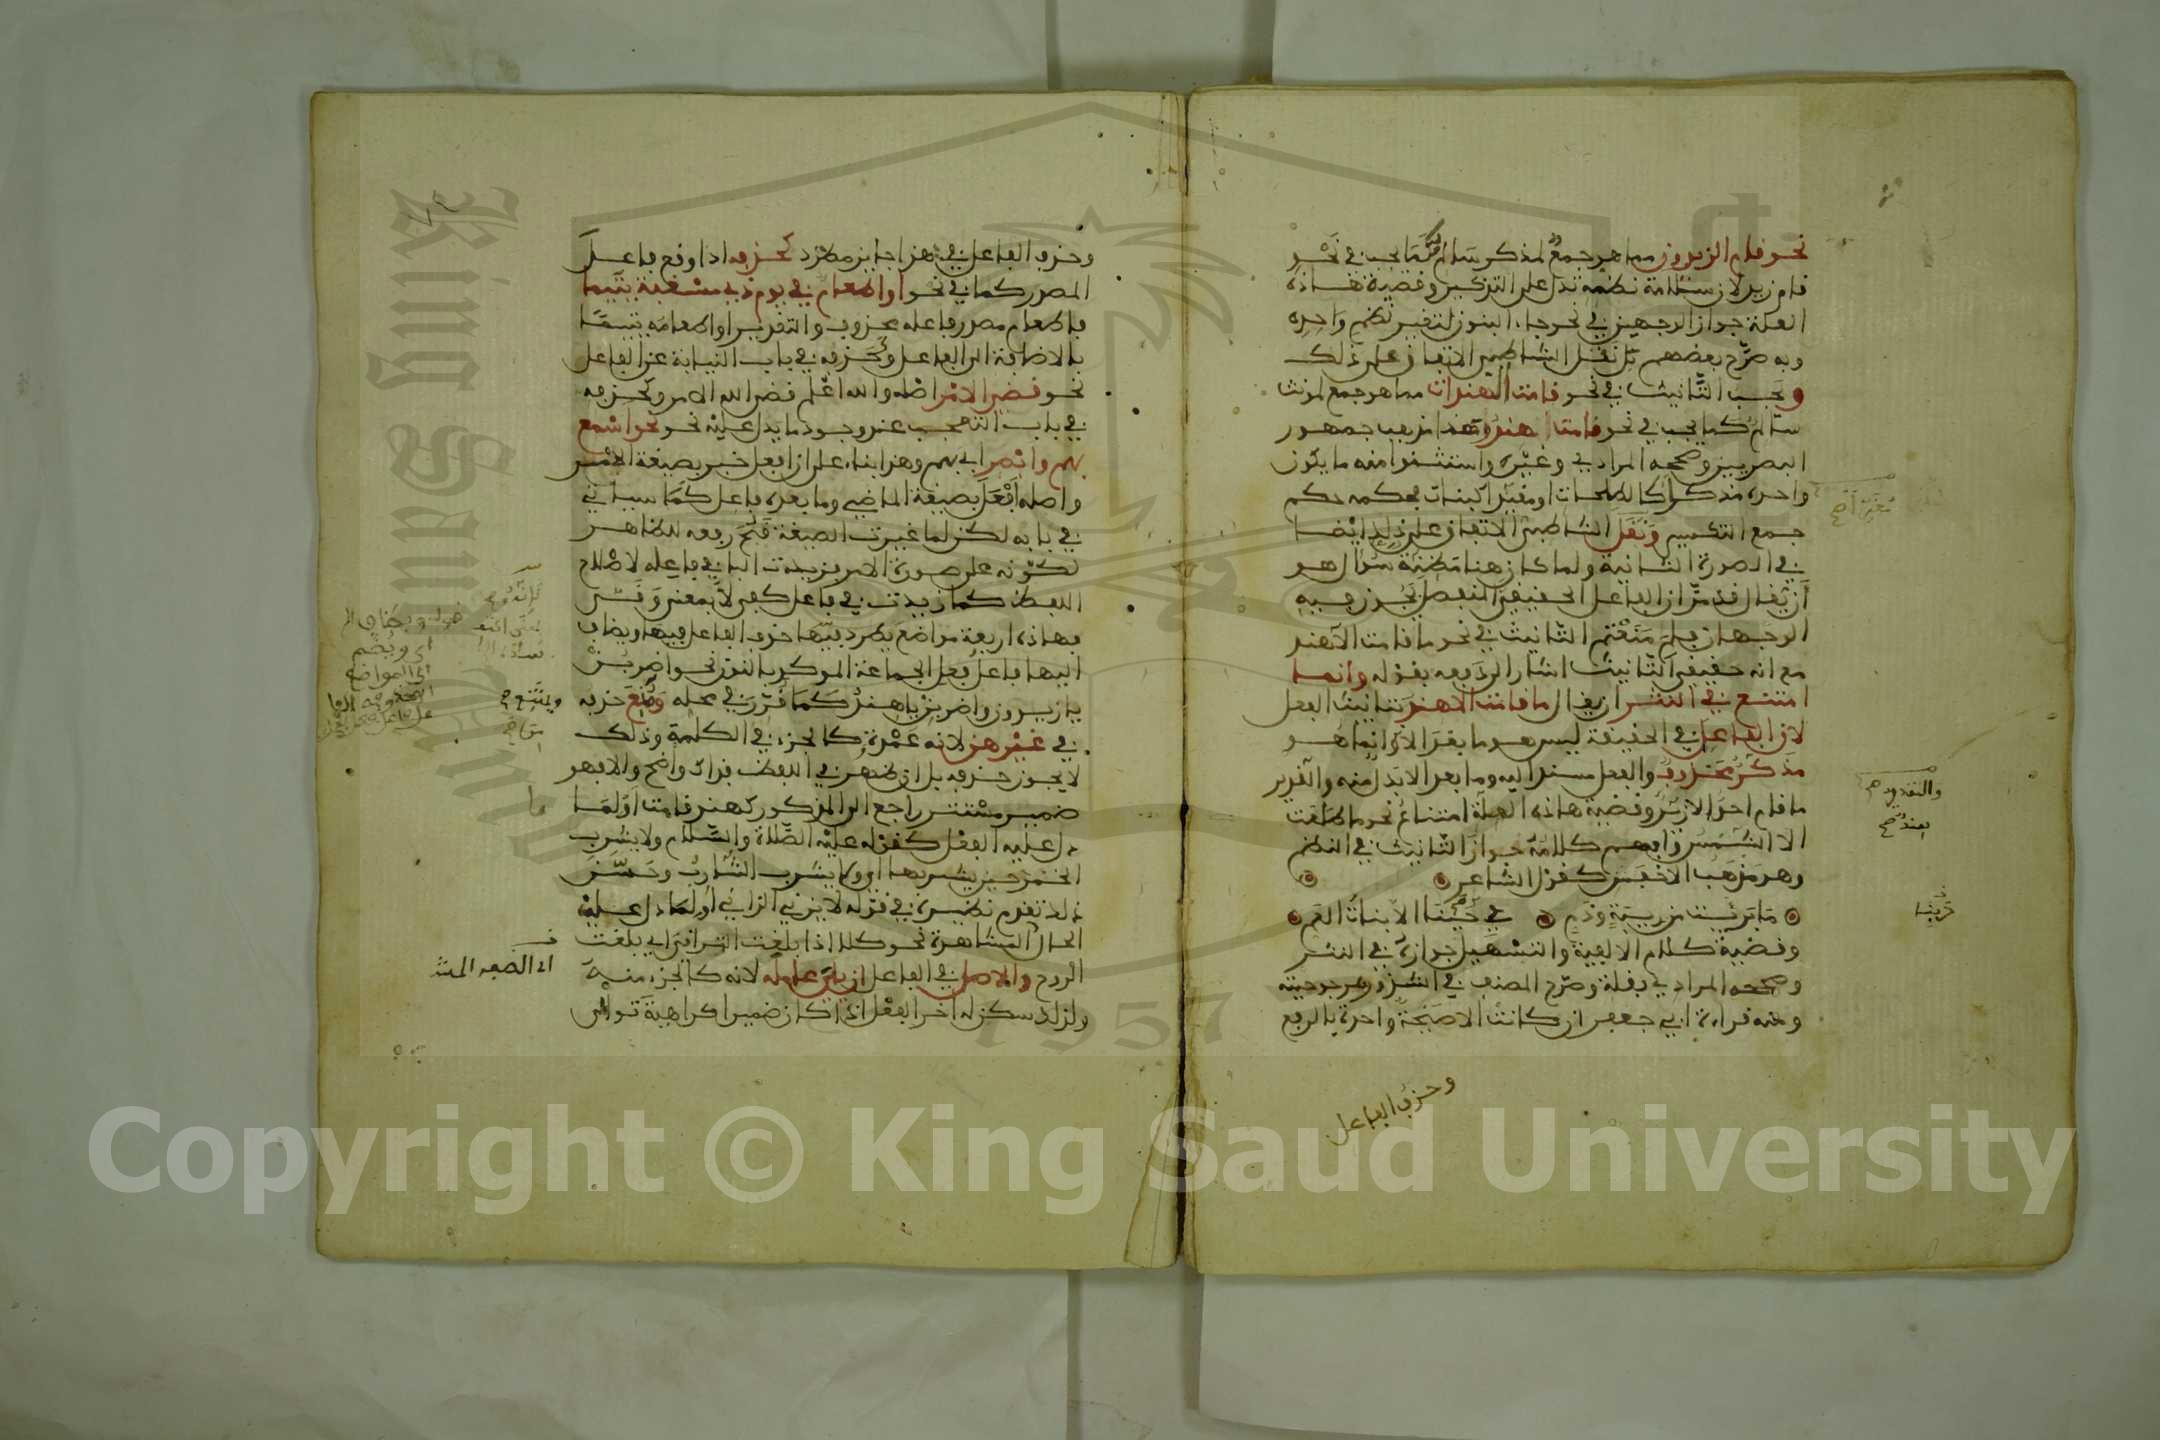 نحو قام الزيدون مما هو جمع لمذكر سالم كما يجب في نحو
قام زيد لان سلامة نظمه تدل على التذكير وقضية هذه
العلة جواز الوجهين في نحو جاء البنون لتغير نظم واحده
وبه صرح بعضهم بل نقل الشاطبي الاتفاق على ذلك
ويجب التانيث في نحو قامت الهندات مما هو جمع لمونث
سالم كما يجب في نحو قامت هند وهذا مذهب جمهور
البصريين وصححه المرادي وغيره واستثنوا منه ما يكون
واحده مذكرا كالطلحات او مغيرا كبنات فحكمه حكم
جمع التكسير ونقل الشاطبي الاتفاق على ذلك ايضا
في الصورة الثانية ولما كان هنا مظنة سؤال هو
ان يقال قد مر ان الفاعل الحقيقي المنفصل يجوز فيه
الوجهان فلم منعتم التانيث في نحو ما قامت الا هند
مع انه حقيقي التانيث اشار الى دفعه بقوله وانما
امتنع في النثر ان يقال ما قامت الا هند بتانيث الفعل
لان الفاعل في الحقيقة ليس هو ما بعد الا وانما هو
مذكر محذوف والفعل مسند اليه وما بعد الا بدل منه والتقدير
ما قام احد الا زيد وقضية هاذه العلة امتناع نحو ما طلعت
الا الشمس وافهم كلامه جواز التانيث في النظم
وهو مذهب الاخفش كقول الشاعر
ما برئت من ريبة وذم في حربنا الا بنات العم
وقضية كلام الالفية والتسهيل جوازه في النثر
وصححه المرادي بقلة وصرح المصنف في الشذور بمرجوحيته
ومنه قراءة ابي جعفر ان كانت الا صيحة واحدة بالرفع
وحذف الفاعل
والتقدير
حربنا
وحذف الفاعل في هذا جايز مطرد كحذفه اذا وقع فاعل
المصدر كما في نحو او اطعام في يوم ذي مسغبة يتيما
فاطعام مصدر فاعله محذوف والتقدير او اطعامه يتيما
بالاضافة الى الفاعل وكحذفه في باب النيابة عن الفاعل
نحو قضي الامر اصله والله اعلم قضى الله الامر وكحذفه
في باب التعجب عند وجود ما يدل عليه نحو اسمع
بهم وابصر اي بهم وهذا بناء على ان افعل خبر بصيغة الامر
واصله افعل بصيغة الماضي وما بعده فاعل كما سياتي
في بابه لكن لما غيرت الصيغة قبح رفعه للظاهر
لكونه على صورة الامر فزيدت الباء في فاعله لاصلاح
اللفظ كما زيدت في فاعل كفى لا بمعنى وقى
فهاذه اربعة مواضع يطرد فيها حذف الفاعل فيها ويضاف
اليها فاعل فعل الجماعة الموكد بالنون نحو اضربن
يا زيدون واضربن يا هند كما قرر في محله ومنع حذفه
في غير هذا لانه عمدة كالجزء في الكلمة وذلك
لا يجوز حذفه بل ان ظهر في اللفظ فذاك واضح والا فهو
ضمير مستتر راجع الى المذكور كهند قامت او لما
دل عليه الفعل كقوله عليه الصلاة والسلام ولا يشرب
الخمر حين يشربها اي ولا يشرب الشارب وحسن
ذلك تقدم نظيره في قوله لا يزني الزاني او لما دل عليه
الحال المشاهدة نحو كلا اذا بلغت التراقي اي بلغت
الروح والاصل في الفاعل ان يلي عامله لانه كالجزء منه
ولذلك سكن له اخر الفعل اذا كان ضميرا كراهية توالي
قوله ويضاف الخ
اي ويضم
الى المواضع
ويمتنع صح
Copyright © King Saud University
1957